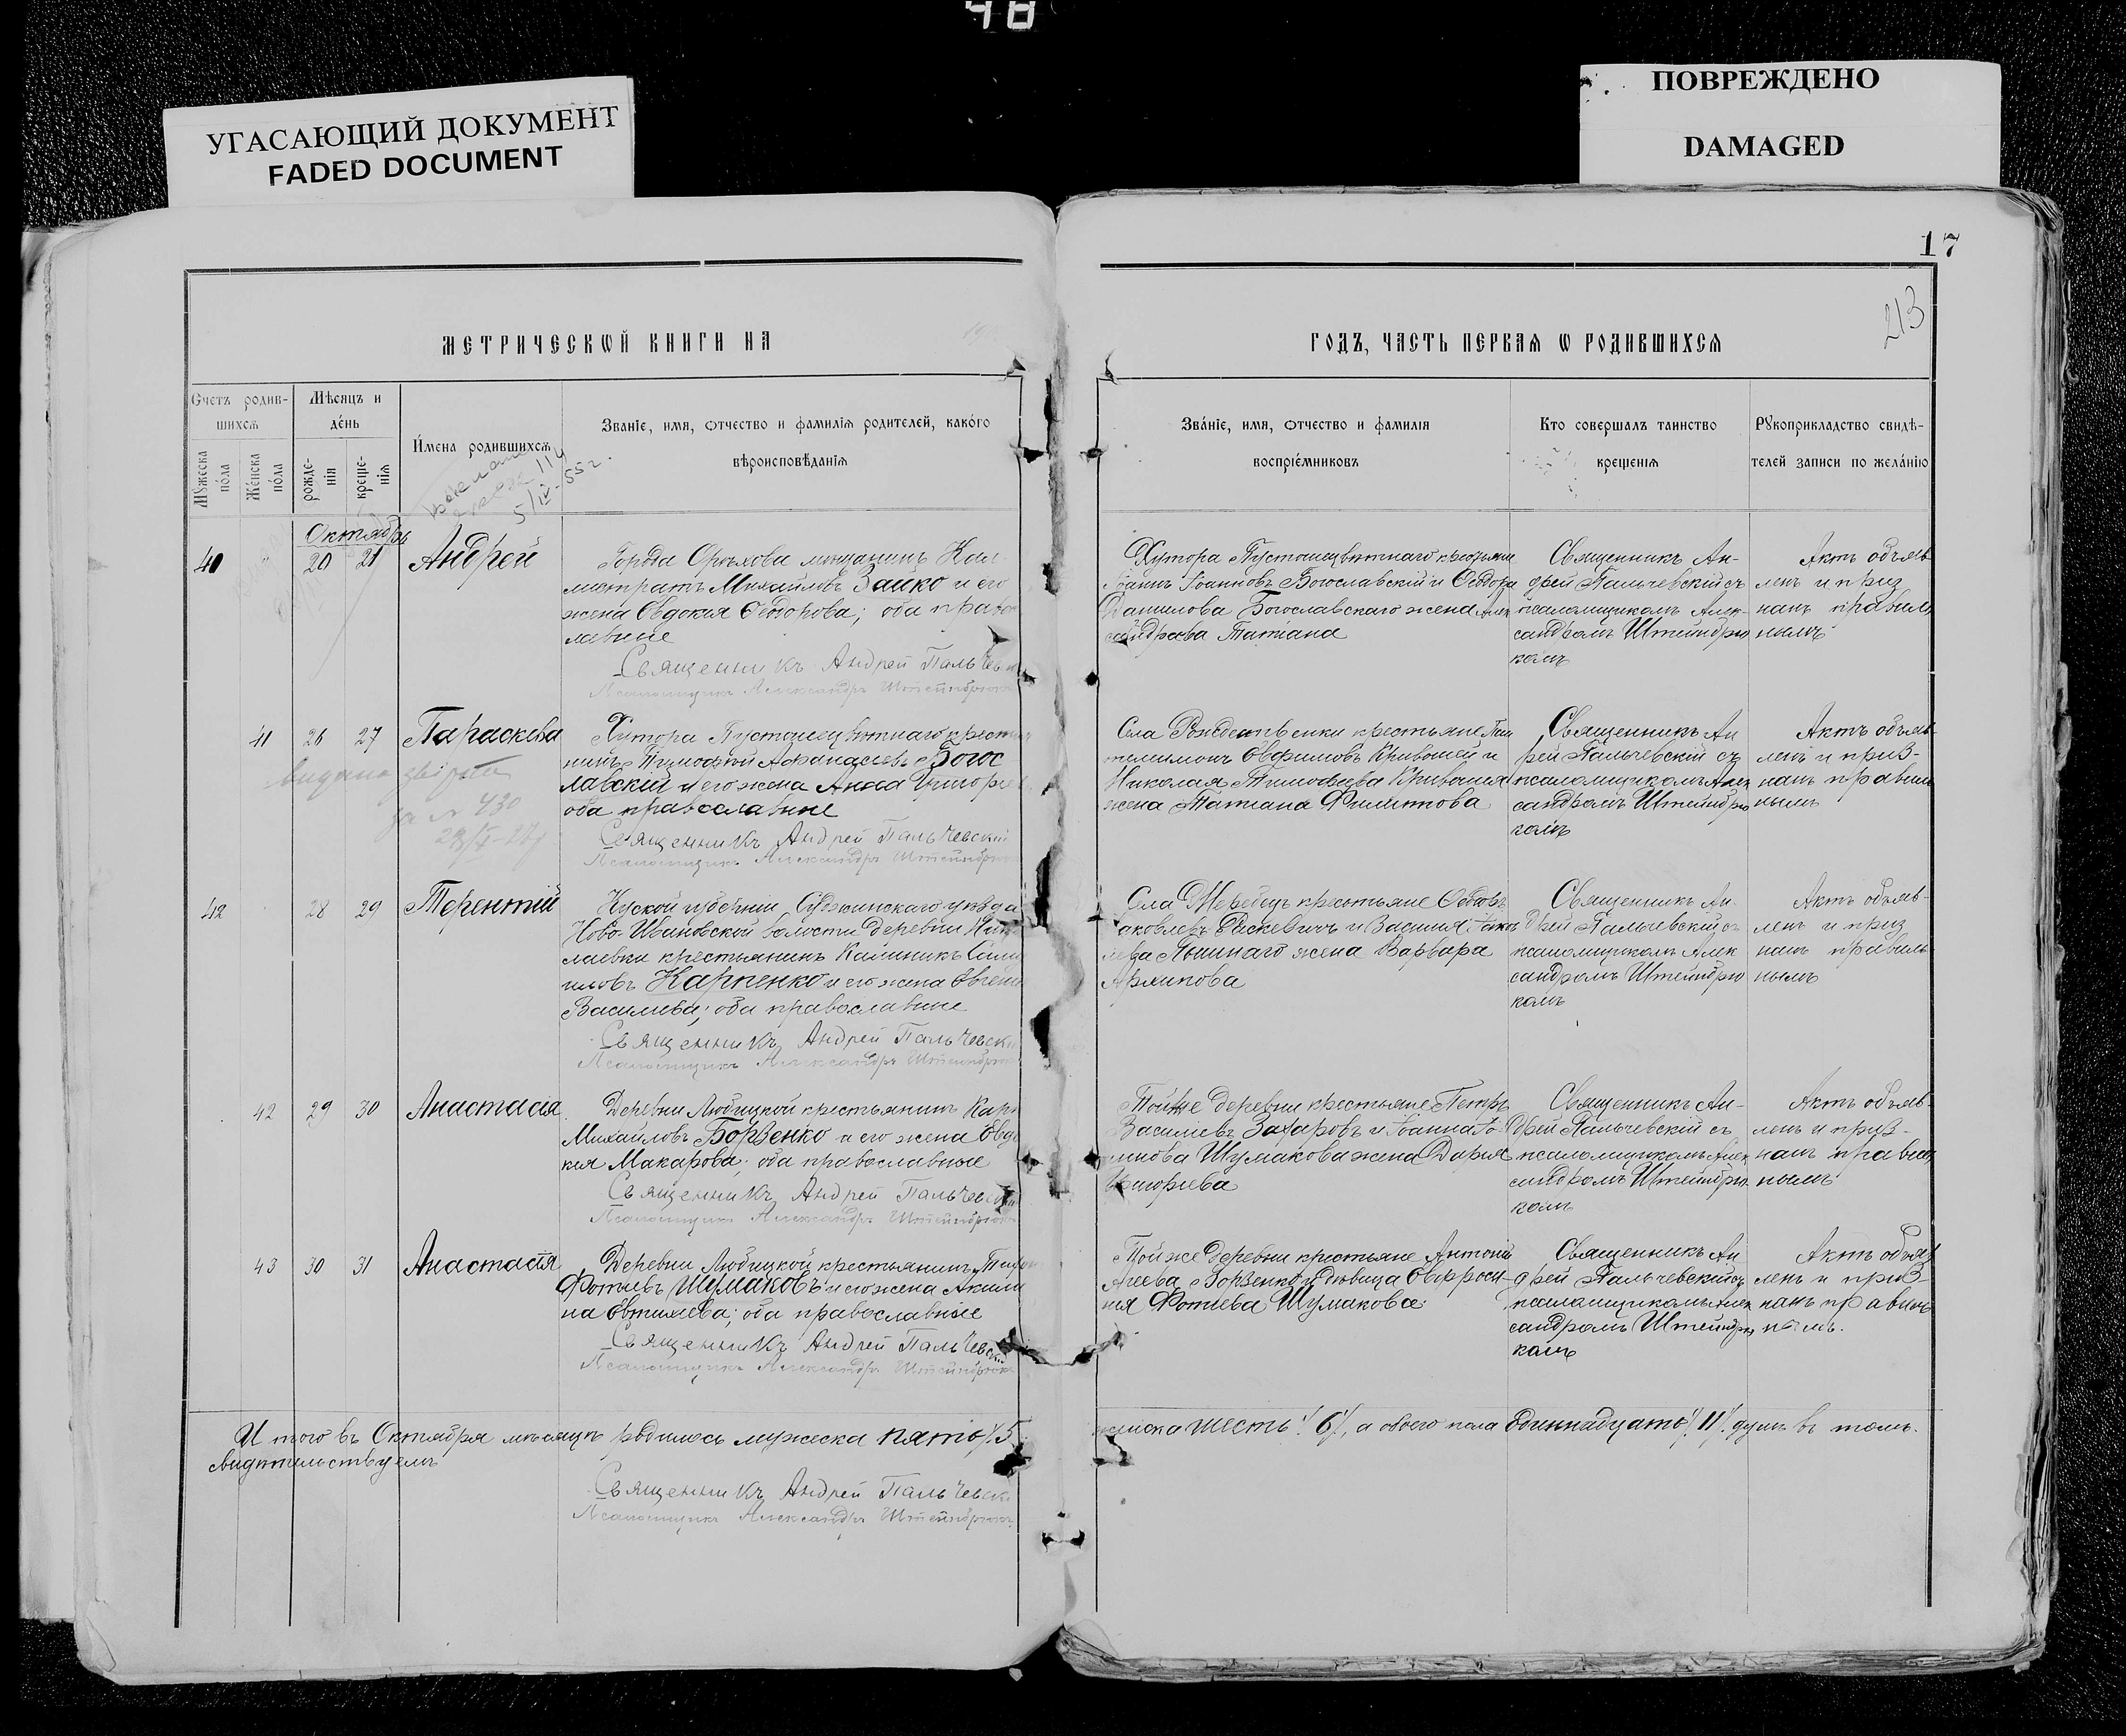 48
УГАСАЮЩИЙ ДОКУМЕНТ
FADED DOCUMENT
ПОВРЕЖДЕНО
DAMAGED
17
213
МЕТРИЧЕСКѠЙ КНИГИ НА
ГОДЪ, ЧАСТЬ ПЕРВАѦ Ѡ РОДИВШИХСѦ
Счетъ родив-
шихсѧ
Мѣсяцъ и
де́нь
Мꙋжеска
по́ла
Же́нска
по́ла
рожде-
нїѧ
креще-
нїѧ
И́мена родившихсѧ
Званїе, имя, ѻтчество и фамилїѧ родителей, како́го
вѣроисповѣданїѧ
Зва́нїе, имя, ѻтчество и фамилїѧ
воспрїе́мниковъ
Кто совершалъ таинство
крещенїѧ
Рꙋкоприкладство свидѣ-
телей записи по жела́нїю
5/IV-55 г.
Октябрь
40 20 21 Андрей
Города Орѣхова мѣщанинъ Кал
истратъ Михайловъ Заико и его
жена Евдокія Ѳеодорова; оба право
лавные
Священникъ Андрей Пальчев
Псаломщикъ Александръ Штейнбрюк
Хутора Пустоцвѣтнаго крестьяне
Іоаннъ Іоанновъ Богославскій и Ѳеодора
Даниилова Богославскаго жена Алек
сандрова Татіана
Священникъ Ан-
дрей Пальчевскій съ
псаломщикомъ Алек-
сандромъ Штейнбрю
комъ
Актъ объяв
ленъ и приз
нанъ правиль
нымъ
41 26 27 Параскева
Видана
за № 430
Хутора Пустоцвѣтнаго крестья
нинъ Тимофей Аѳанасіевъ Богос
лавскій и его жена Анна Григорье
оба православные
Священникъ Андрей Пальчевскій
Псаломщикъ Александръ Штейнбрюк
Села Рождественки крестьяне Пан
телимонъ Евфимовъ Кривошей и
Николая Тимофеева Кривошея
жена Татіана Филиппова
Священникъ Ан
рей Пальчевскій съ
псаломщикомъ Алек
сандромъ Штейнбрю
комъ
Актъ объяв-
ленъ и приз-
нанъ правиль
нымъ
42 28 29 Терентій
Курской губерніи, Суджинскаго уѣзда
Ново-Ивановской волости деревни Ни
лаевки крестьянинъ Калиникъ Сам
иловъ Карпенко и его жена Евгені
Васильева; оба православные
Священникъ Андрей Пальчевск
Псаломщикъ Александръ Штейнбрюк
Села крестьяне Ѳеодоръ
аковлевъ и Василія Яков
лева жена Варвара
Архипова
Священникъ Ан-
дрей Пальчевскій съ
псаломщикомъ Алек
сандромъ Штейнбрю
комъ
Актъ объяв-
ленъ и приз
нанъ правиль
нымъ
42 29 30 Анастасія
Деревни Любицкой крестьянинъ Карп
Михайловъ Борзенко и его жена Евдо
кія Макарова; оба православные
Священникъ Андрей Пальчевск
Псаломщикъ Александръ Штейнбрюк
Той же деревни крестьяне Петръ
Василіевъ Захаровъ и Іоанна Іо
аннова Шумакова жена Дарія
Григорьева
Священникъ Ан-
дрей Пальчевскій съ
псаломщикомъ Алек
сандромъ Штейнбрю
комъ
Актъ объяв-
ленъ и приз-
нанъ правиль
нымъ
43 30 31 Анастасія
Деревни Любицкой крестьянинъ Тихон
Фотіевъ Шумаковъ и его жена Акили
на Евтихіева; оба православные
Священникъ Андрей Пальчевск
Псаломщикъ Александръ Штейнбрюк
Той же деревни крестьяне Антоній
Агеева Борзенко и дѣвица Евфроси-
нія Фотіева Шумакова
Священникъ Ан
дрей Пальчевскій съ
псаломщикомъ Алек
сандромъ Штейнбрю
комъ
Актъ объяв
ленъ и приз-
нанъ правиль
нымъ.
Итого въ Октябрѣ мѣсяцѣ родилось мужеска пять /5
женска шесть /6/, а обоего пола одиннадцать /11/ душъ въ томъ.
свидѣтельствуемъ
Священникъ Андрей Пальчевск
Псаломщикъ Александръ Штейнбрюкъ